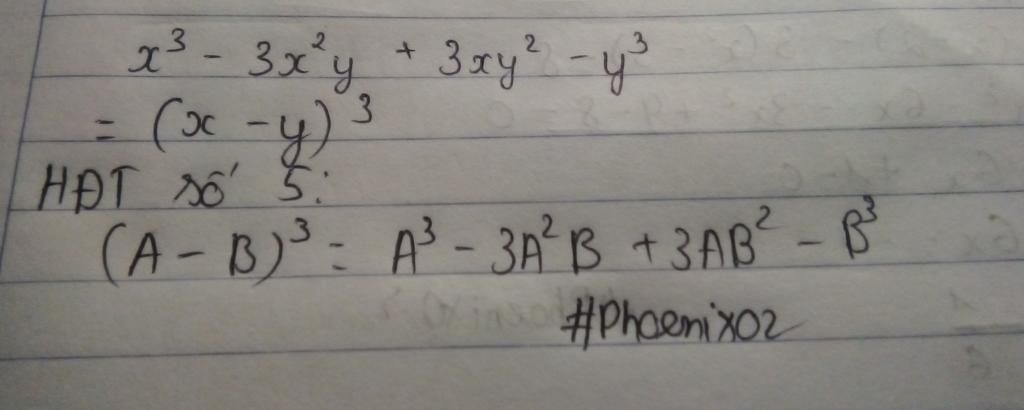 x³ - 3x²y + 3xy² - y³
= (x - y)³
HĐT số 5:
(A - B)³ = A³ - 3A²B + 3AB² - B³
#Phoenix02